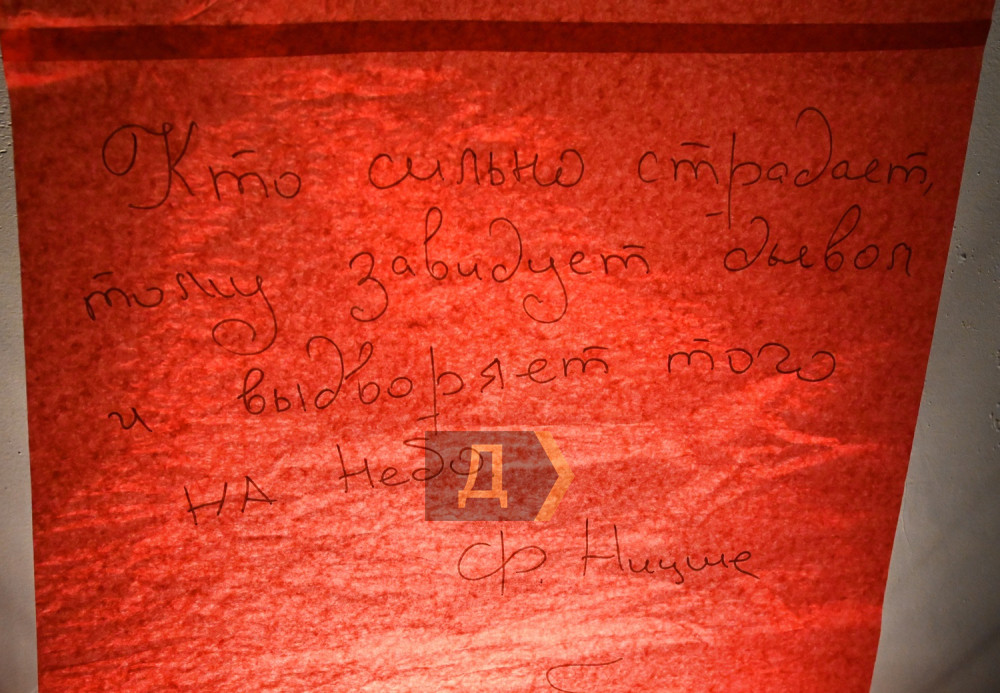 Кто сильно страдает,
тому завидует дьявол
и выдворяет того
на небо
Д
Ф. Ницше